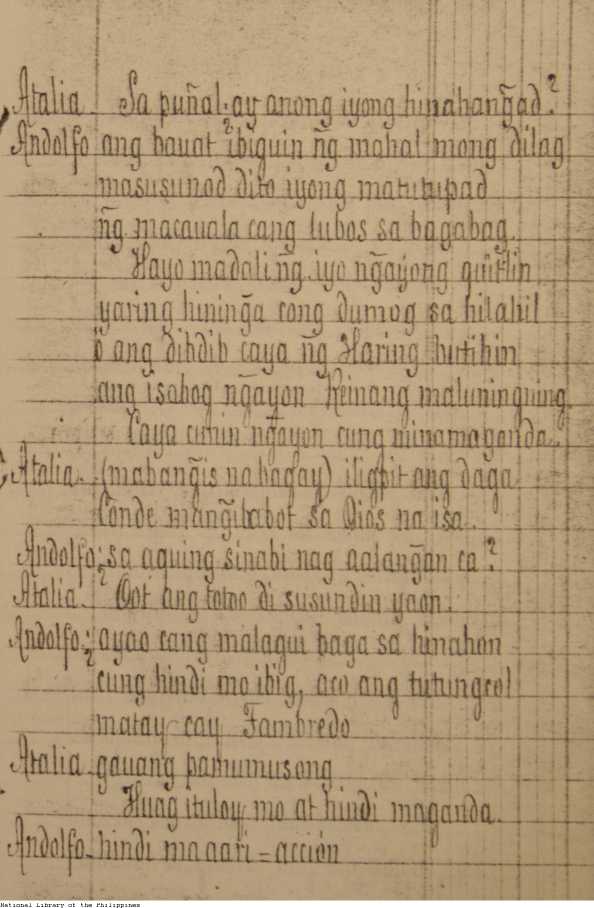 Atalia. Sa puñal, ay anong iyong hinahang̃ad?
Andolfo ang bauat ibiguin ng̃ mahal mong dilag
masusunod dito iyong matutupad
ng̃ macauala cang lubos sa bagabag.
Hayo madali ng̃, iyo ng̃ayong quitlin
yaring hining̃a cong dumog sa hilahil
ó ang dibdib caya ng̃ Haring butihin
ang isabog ng̃ayon Reinang maluningning.
Caya cunin ng̃ayon cung minamaganda.
Atalia. (mabang̃is na bagay) iligpit ang daga
Conde mang̃ilabot sa Dios na isa.
Andolfo; sa aquing sinabi nag aalang̃an ca?
Atalia. Oot ang totoo di susundin yaon.
Andolfo; ayao cang malagui baga sa hinahon
cung hindi mo ibig, aco ang tutungcol
matay cay Fambredo
Atalia gauang pamumusong
Huag ituloy mo at hindi maganda.
Andolfo. hindi maaari = acción
National Library of the Philippines